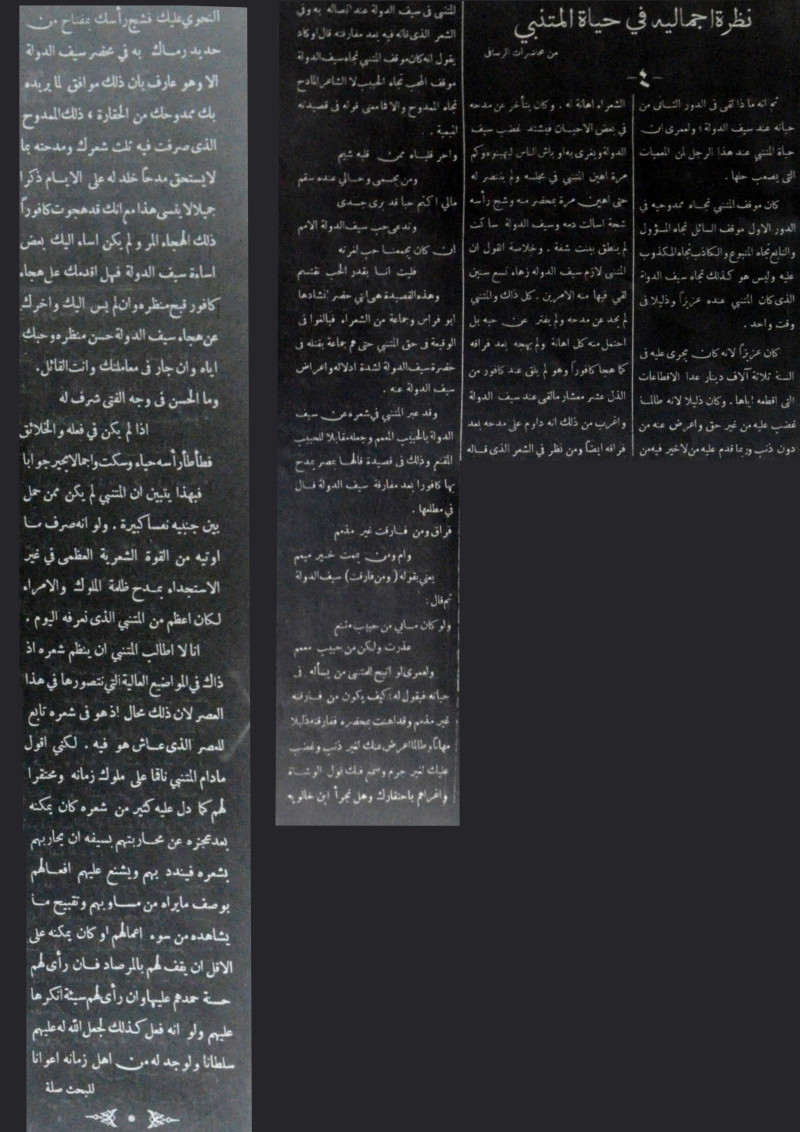 نظرة اجمالية في حياة المتنبي
من محاضرات الرصافي
- ٤ -
ثم انه ما ذا لقى فى الدور الثانى من
حياته عند سيف الدولة ؛ ولعمرى ان
حياة المتنبي عند هذا الرجل لمن المعميات
التى يصعب حلها .
كان موقف المتنبي تجاه ممدوحيه فى
الدور الاول موقف السائل تجاه المسؤول
والتابع تجاه المتبوع والكاذب تجاه المكذوب
عليه وليس هو كذلك تجاه سيف الدولة
الذى كان المتنبي عنده عزيزاً وذليلا فى
وقت واحد .
كان عزيزاً لانه كان يجرى عليه فى
السنة ثلاثة آلاف دينار عدا الاقطاعات
التى اقطعه اياها . وكان ذليلا لانه طالما
غضب عليه من غير حق واعرض عنه من
دون ذنب وربما قدم عليه من لا خير فيه من
الشعراء اهانة له . وكان يتأخر عن مدحه
فى بعض الاحيان فيشتد غضب سيف
الدولة ويغرى به اوباش الناس ليهينوه وكم
مرة اهين المتنبي فى مجلسه ولم ينتصر له
حتى اهين مرة بمحضر منه وشج رأسه
شجة اسالت دمه وسيف الدولة ساكت
لم ينطق ببنت شفة . وخلاصة القول ان
المتنبى لازم سيف الدوله زهاء تسع سنين
لقي فيها منه الامرين . كل ذلك والمتنبي
لم يحد عن مدحه ولم يفتر عن حبه بل
احتمل منه كل اهانة ولم يهجه بعد فراقه
كما هجا كافوراً وهو لم يلق عند كافور من
الذل عشر معشار ما لقى عند سيف الدولة
واغرب من ذلك انه داوم على مدحه بعد
فراقه ايضاً ومن نظر في الشعر الذى قاله
المتنبى فى سيف الدولة عند اتصاله به وفي
الشعر الذى قاله فيه بعد مفارقته قال او كاد
يقول انه كان موقف المتنبي تجاه سيف الدولة
موقف المحب تجاه الحبيب لا الشاعر المادح
تجاه الممدوح والا فا معنى قوله فى قصيدته
الميمية .
واحر قلباه ممن قلبه شبم
ومن بجسمى وحالي عنده سقم
مالي اكتم حبا قد برى جسدى
وتدعى حب سيف الدولة الامم
ان كان يجمعنا حب لغرته
فليت انا بقدر الحب نقتسم
وهذه القصيدة هي التي حضر انشادها
ابو فراس وجماعة من الشعراء فبالغوا فى
الوقيعة فى حق المتنبي حتى هم جماعة بقتله فى
حضرة سيف الدولة لشدة ادلاله واعراض
سيف الدولة عنه .
وقد عبر المتنبي في شعره عن سيف
الدولة بالحبيب المعمم وجعله مقابلا للحبيب
المقنع وذلك فى قصيدة قالها بمصر يمدح
بها كافورا بعد مفارقة سيف الدولة قال
في مطلعها .
فراق ومن فارقت غير مذمم
وام ومن يممت خير ميمم
يعنى بقوله ( ومن فارقت ) سيف الدولة
ثم قال .
ولو كان مابي من حبيب مقنع
عذرت ولكن من حبيب معمم
ولعمرى لو اتيح للمتنبى من يسأله فى
حياته فيقول له : كيف يكون من فارقته
غير مذمم وقد اهنت بمحضره ففارقته ذليلا
مهانا وطالما اعرض عنك لغير ذنب وغضب
عليك لغير جرم وسمع فيك قول الوشاة
واغراهم باحتقارك وهل تجرأ ابن خالويه
النحوي عليك فشج رأسك بمفتاح من
حديد رماك به في محضر سيف الدولة
الا وهو عارف بان ذلك موافق لما يريده
بك ممدوحك من الحقارة ، ذلك الممدوح
الذى صرفت فيه ثلث شعرك ومدحته بما
لا يستحق مدحاً خلد له على الايام ذكرا
جميلا لا ينسى هذا مع انك قد هجوت كافوراً
ذلك الهجاء المر ولم يكن اساء اليك بعض
اساءة سيف الدولة فهل اقدمك على هجاء
كافور قبح منظره وان لم يسئ اليك واخرك
عن هجاء سيف الدولة حسن منظره وحبك
اياه وان جار فى معاملتك وانت القائل .
وما الحسن فى وجه الفتى شرف له
اذا لم يكن في فعله والخلائق
فطأطأ رأسه حياء وسكت واجما لا يحير جوابا
فبهذا يتبين ان المتنبي لم يكن ممن حمل
بين جنبيه نفسا كبيرة . ولو انه صرف ما
اوتيه من القوة الشعرية العظمى في غير
الاستجداء بمدح ظلمة الملوك والامراء
لكان اعظم من المتنبي الذى نعرفه اليوم .
انا لا اطالب المتنبي ان ينظم شعره اذ
ذاك في المواضيع العالية التي نتصورها في هذا
العصر لان ذلك محال اذ هو فى شعره تابع
للعصر الذى عاش هو فيه . لكني اقول
مادام المتنبي ناقما على ملوك زمانه ومحتقرا
لهم كما دل عليه كثير من شعره كان يمكنه
بعد عجزه عن محاربتهم بسيفه ان يحاربهم
بشعره فيندد بهم ويشنع عليهم افعالهم
بوصف ما يراه من مساويهم وتقبيح ما
يشاهده من سوء اعمالهم او كان يمكنه على
الاقل ان يقف لهم بالمرصاد فان رأى لهم
حسنة حمدهم عليها وان رأى لهم سيئة انكرها
عليهم ولو انه فعل كذلك لجعل الله له عليهم
سلطانا ولوجد له من اهل زمانه اعوانا
للبحث صلة